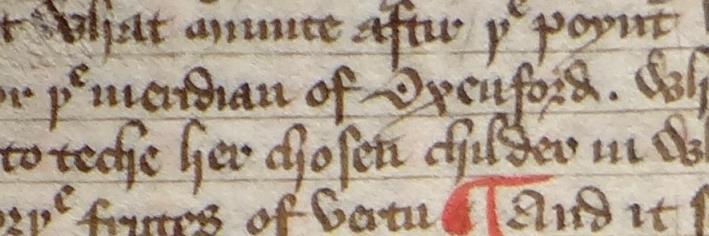 t What minute aftir þe poynt
or þe meridian of Oxenford. Wh
to teche her chosen childer in Wh
orþe frutes of vertu ¶ And it s